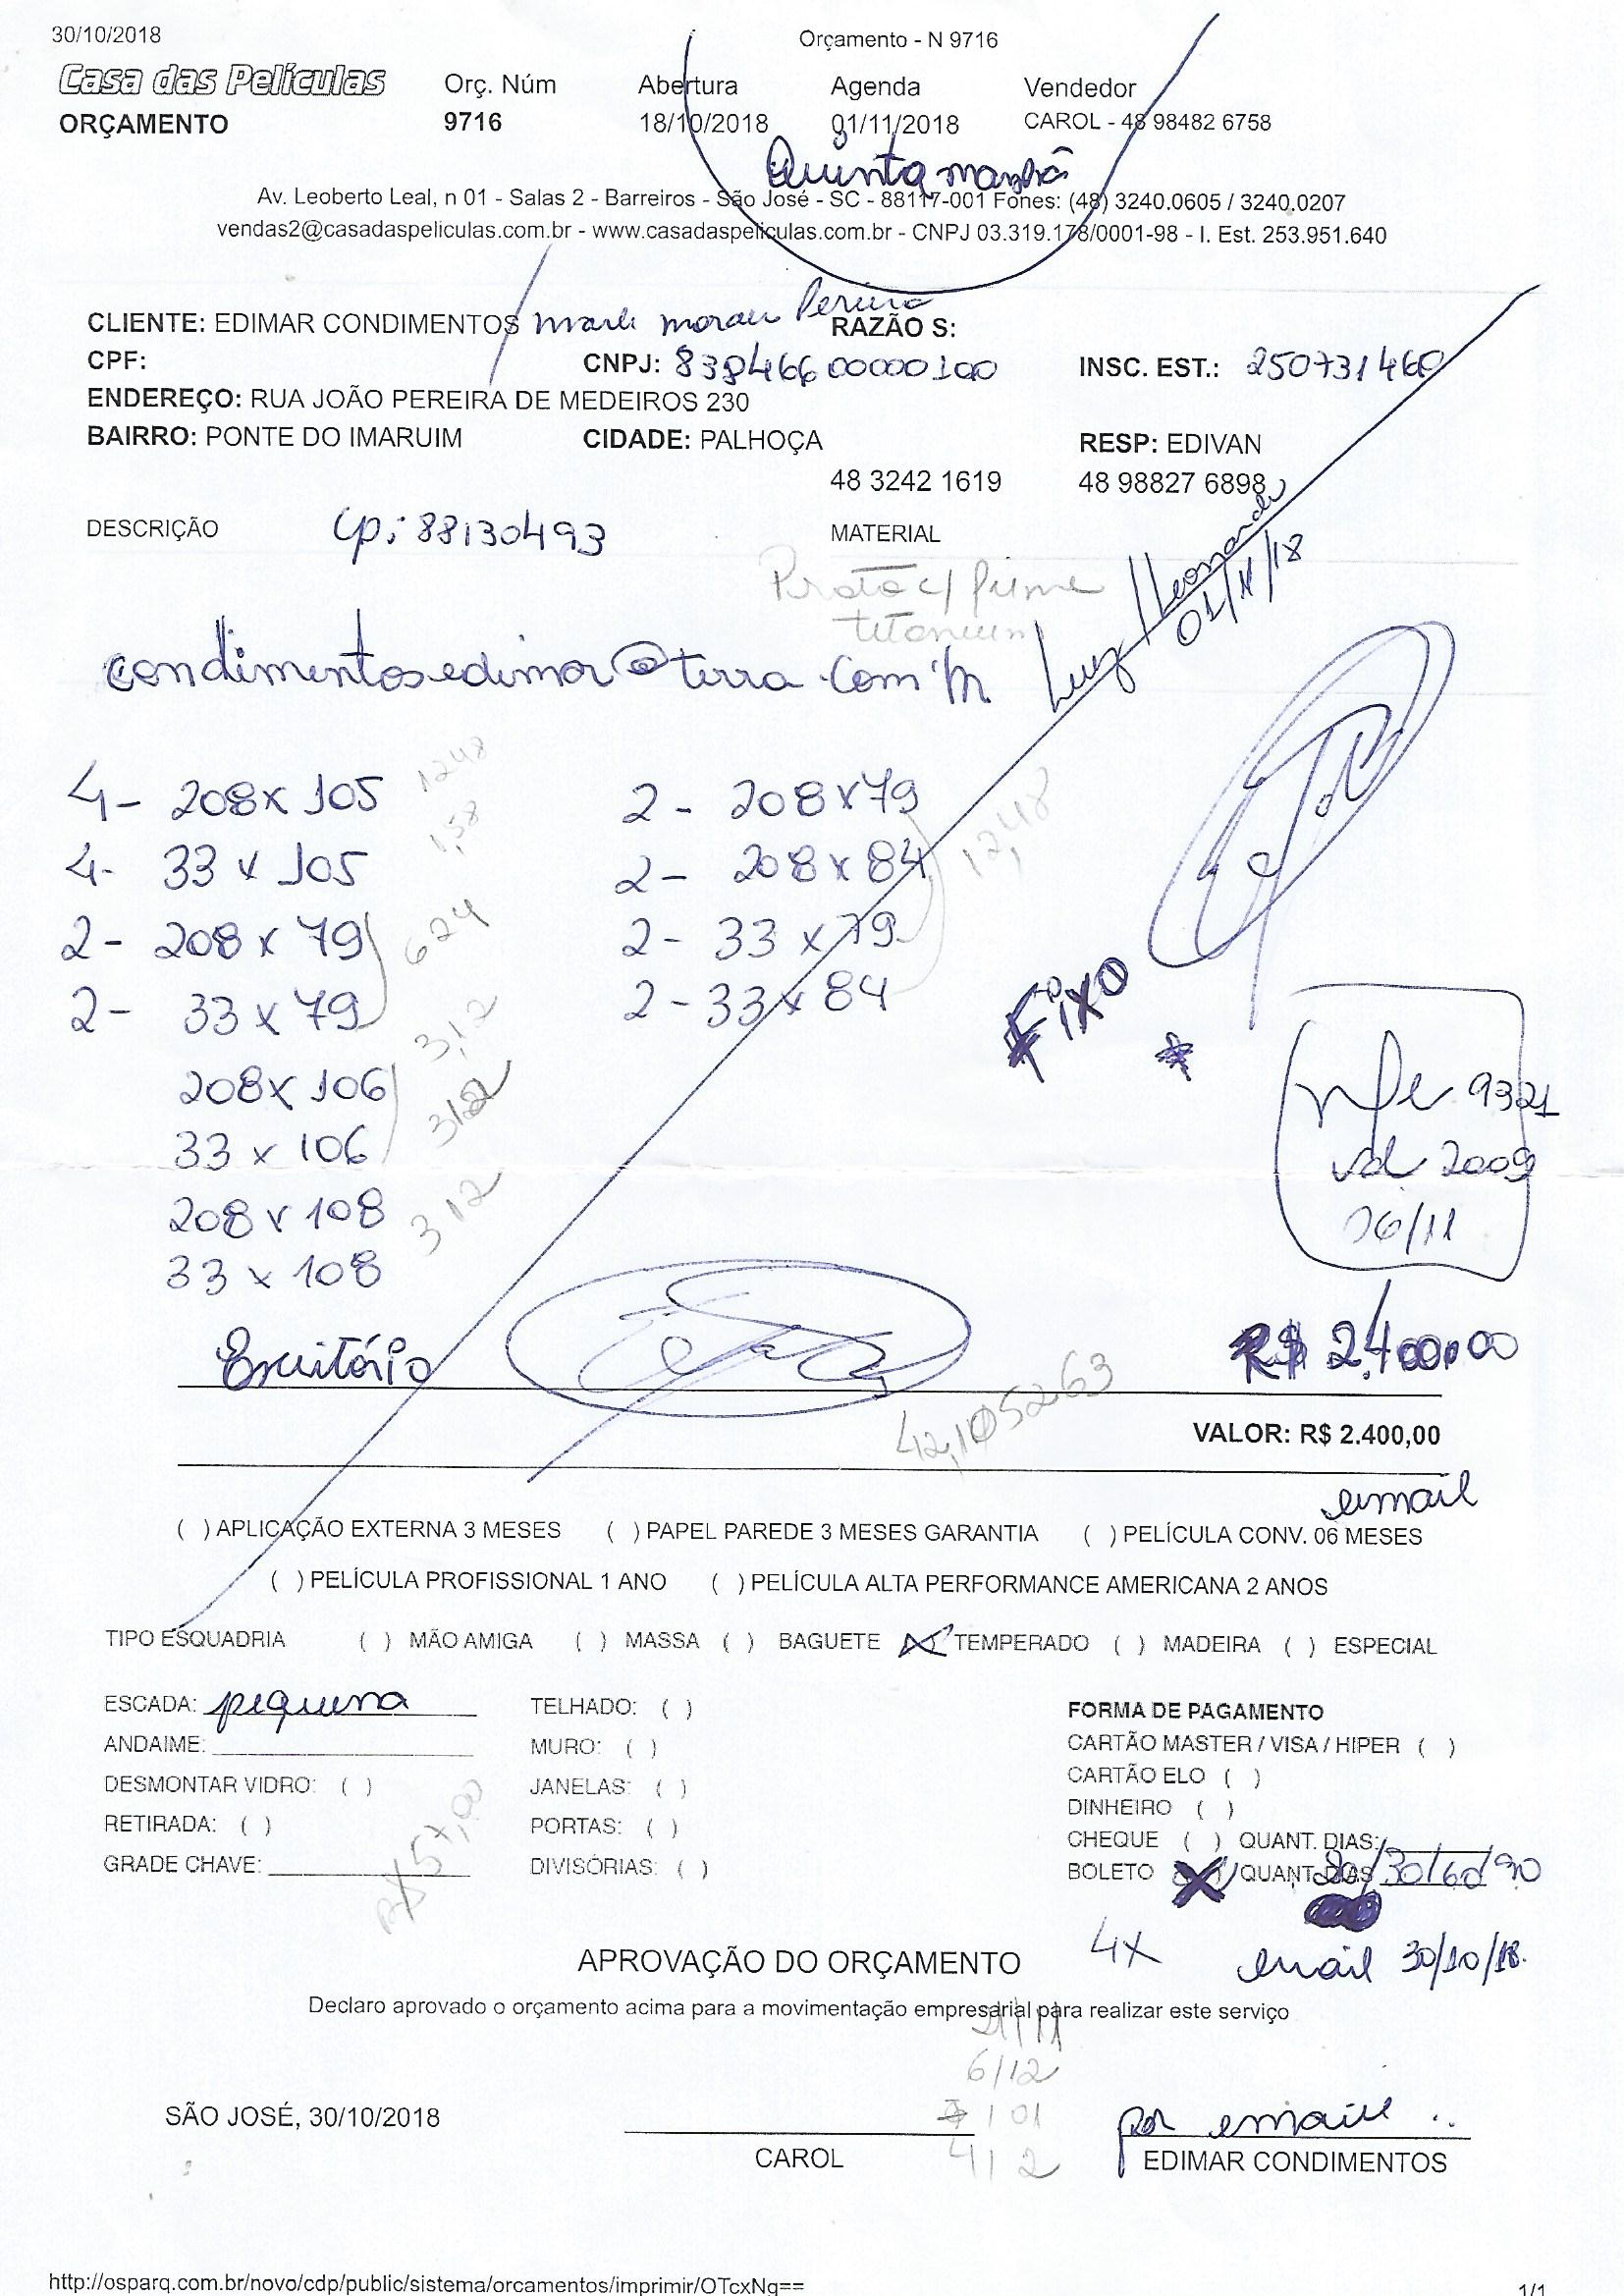 30/10/2018 Orçamento - N 9716
Casa das Películas Orç. Núm Abertura Agenda Vendedor
ORÇAMENTO 9716 18/10/2018 01/11/2018 CAROL - 48 98482 6758
Quinta manhã
Av. Leoberto Leal, n 01 - Salas 2 - Barreiros - São José - SC - 88117-001 Fones: (48) 3240.0605 / 3240.0207
vendas2@casadaspeliculas.com.br - www.casadaspeliculas.com.br - CNPJ 03.319.178/0001-98 - I. Est. 253.951.640
CLIENTE: EDIMAR CONDIMENTOS / Pereira RAZÃO S:
CPF: CNPJ: INSC. EST.: 250731460
ENDEREÇO: RUA JOÃO PEREIRA DE MEDEIROS 230
BAIRRO: PONTE DO IMARUIM CIDADE: PALHOÇA RESP: EDIVAN
48 3242 1619 48 98827 6898
DESCRIÇÃO cp: 88130493 MATERIAL
Prata c/ prime
titanium
Luiz / Leonardo
01/11/18
condimentosedimar@terra.com.br
4- 208x105 1248 2- 208x79
4- 33x105 1,58 2- 208x84 12,48
2- 208x79 624 2- 33x79
2- 33x79 3,12 2- 33x84
Fixo *
208x106 312
33x106
208x108 312
33x108
nfe 9321
vd 2009
06/11
Escritório R$ 2.400,00
42,105263
VALOR: R$ 2.400,00
email
( ) APLICAÇÃO EXTERNA 3 MESES ( ) PAPEL PAREDE 3 MESES GARANTIA ( ) PELÍCULA CONV. 06 MESES
( ) PELÍCULA PROFISSIONAL 1 ANO ( ) PELÍCULA ALTA PERFORMANCE AMERICANA 2 ANOS
TIPO ESQUADRIA ( ) MÃO AMIGA ( ) MASSA ( ) BAGUETE (X) TEMPERADO ( ) MADEIRA ( ) ESPECIAL
ESCADA: pequena TELHADO: ( ) FORMA DE PAGAMENTO
ANDAIME: MURO: ( ) CARTÃO MASTER / VISA / HIPER ( )
DESMONTAR VIDRO: ( ) JANELAS: ( ) CARTÃO ELO ( )
RETIRADA: ( ) PORTAS: ( ) DINHEIRO ( )
GRADE CHAVE: DIVISÓRIAS: ( ) CHEQUE ( ) QUANT. DIAS:
R$ 57,00 BOLETO (X) QUANT. DIAS 20/30/60/90
4x email 30/10/18.
APROVAÇÃO DO ORÇAMENTO
Declaro aprovado o orçamento acima para a movimentação empresarial para realizar este serviço
21/11
6/12
SÃO JOSÉ, 30/10/2018 por email ..
CAROL 4/2 EDIMAR CONDIMENTOS
http://osparq.com.br/novo/cdp/public/sistema/orcamentos/imprimir/OTcxNg== 1/1